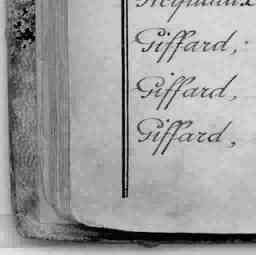 Giffard,
Giffard,
Giffard,